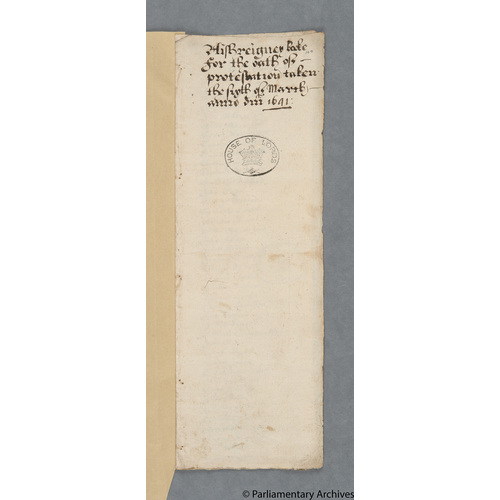 for the oath of
protestation taken
the sixth of March
anno dni 1641:
HOUSE OF LORDS
© Parliamentary Archives